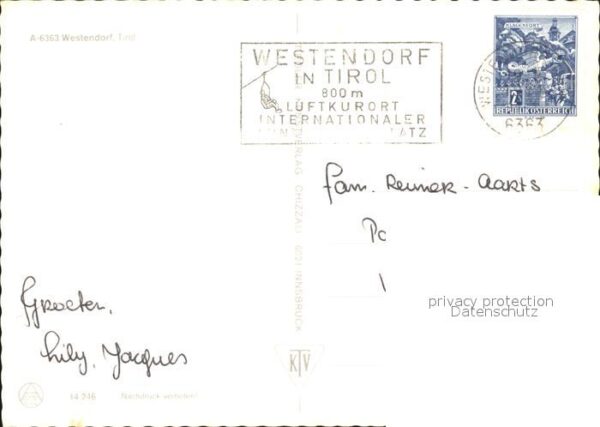 A-6363 Westendorf, Tirol
WESTENDORF
IN TIROL
800 m
LUFTKURORT
INTERNATIONALER
ATZ
KLAGENFURT
2
REPUBLIK ÖSTERREICH
WESTEN
6363
VERLAG CHIZZALI 6021 INNSBRUCK
fam. Reimer-Aarts
Pc
Groeten,
Lily, Jacques
privacy protection
Datenschutz
KTV
14 246 Nachdruck verboten!